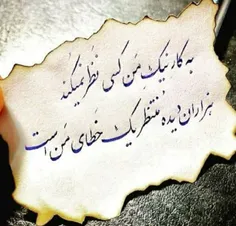 به کار نیک من کسی نظر نمیکند
هزاران دیده منتظر یک خطای من است